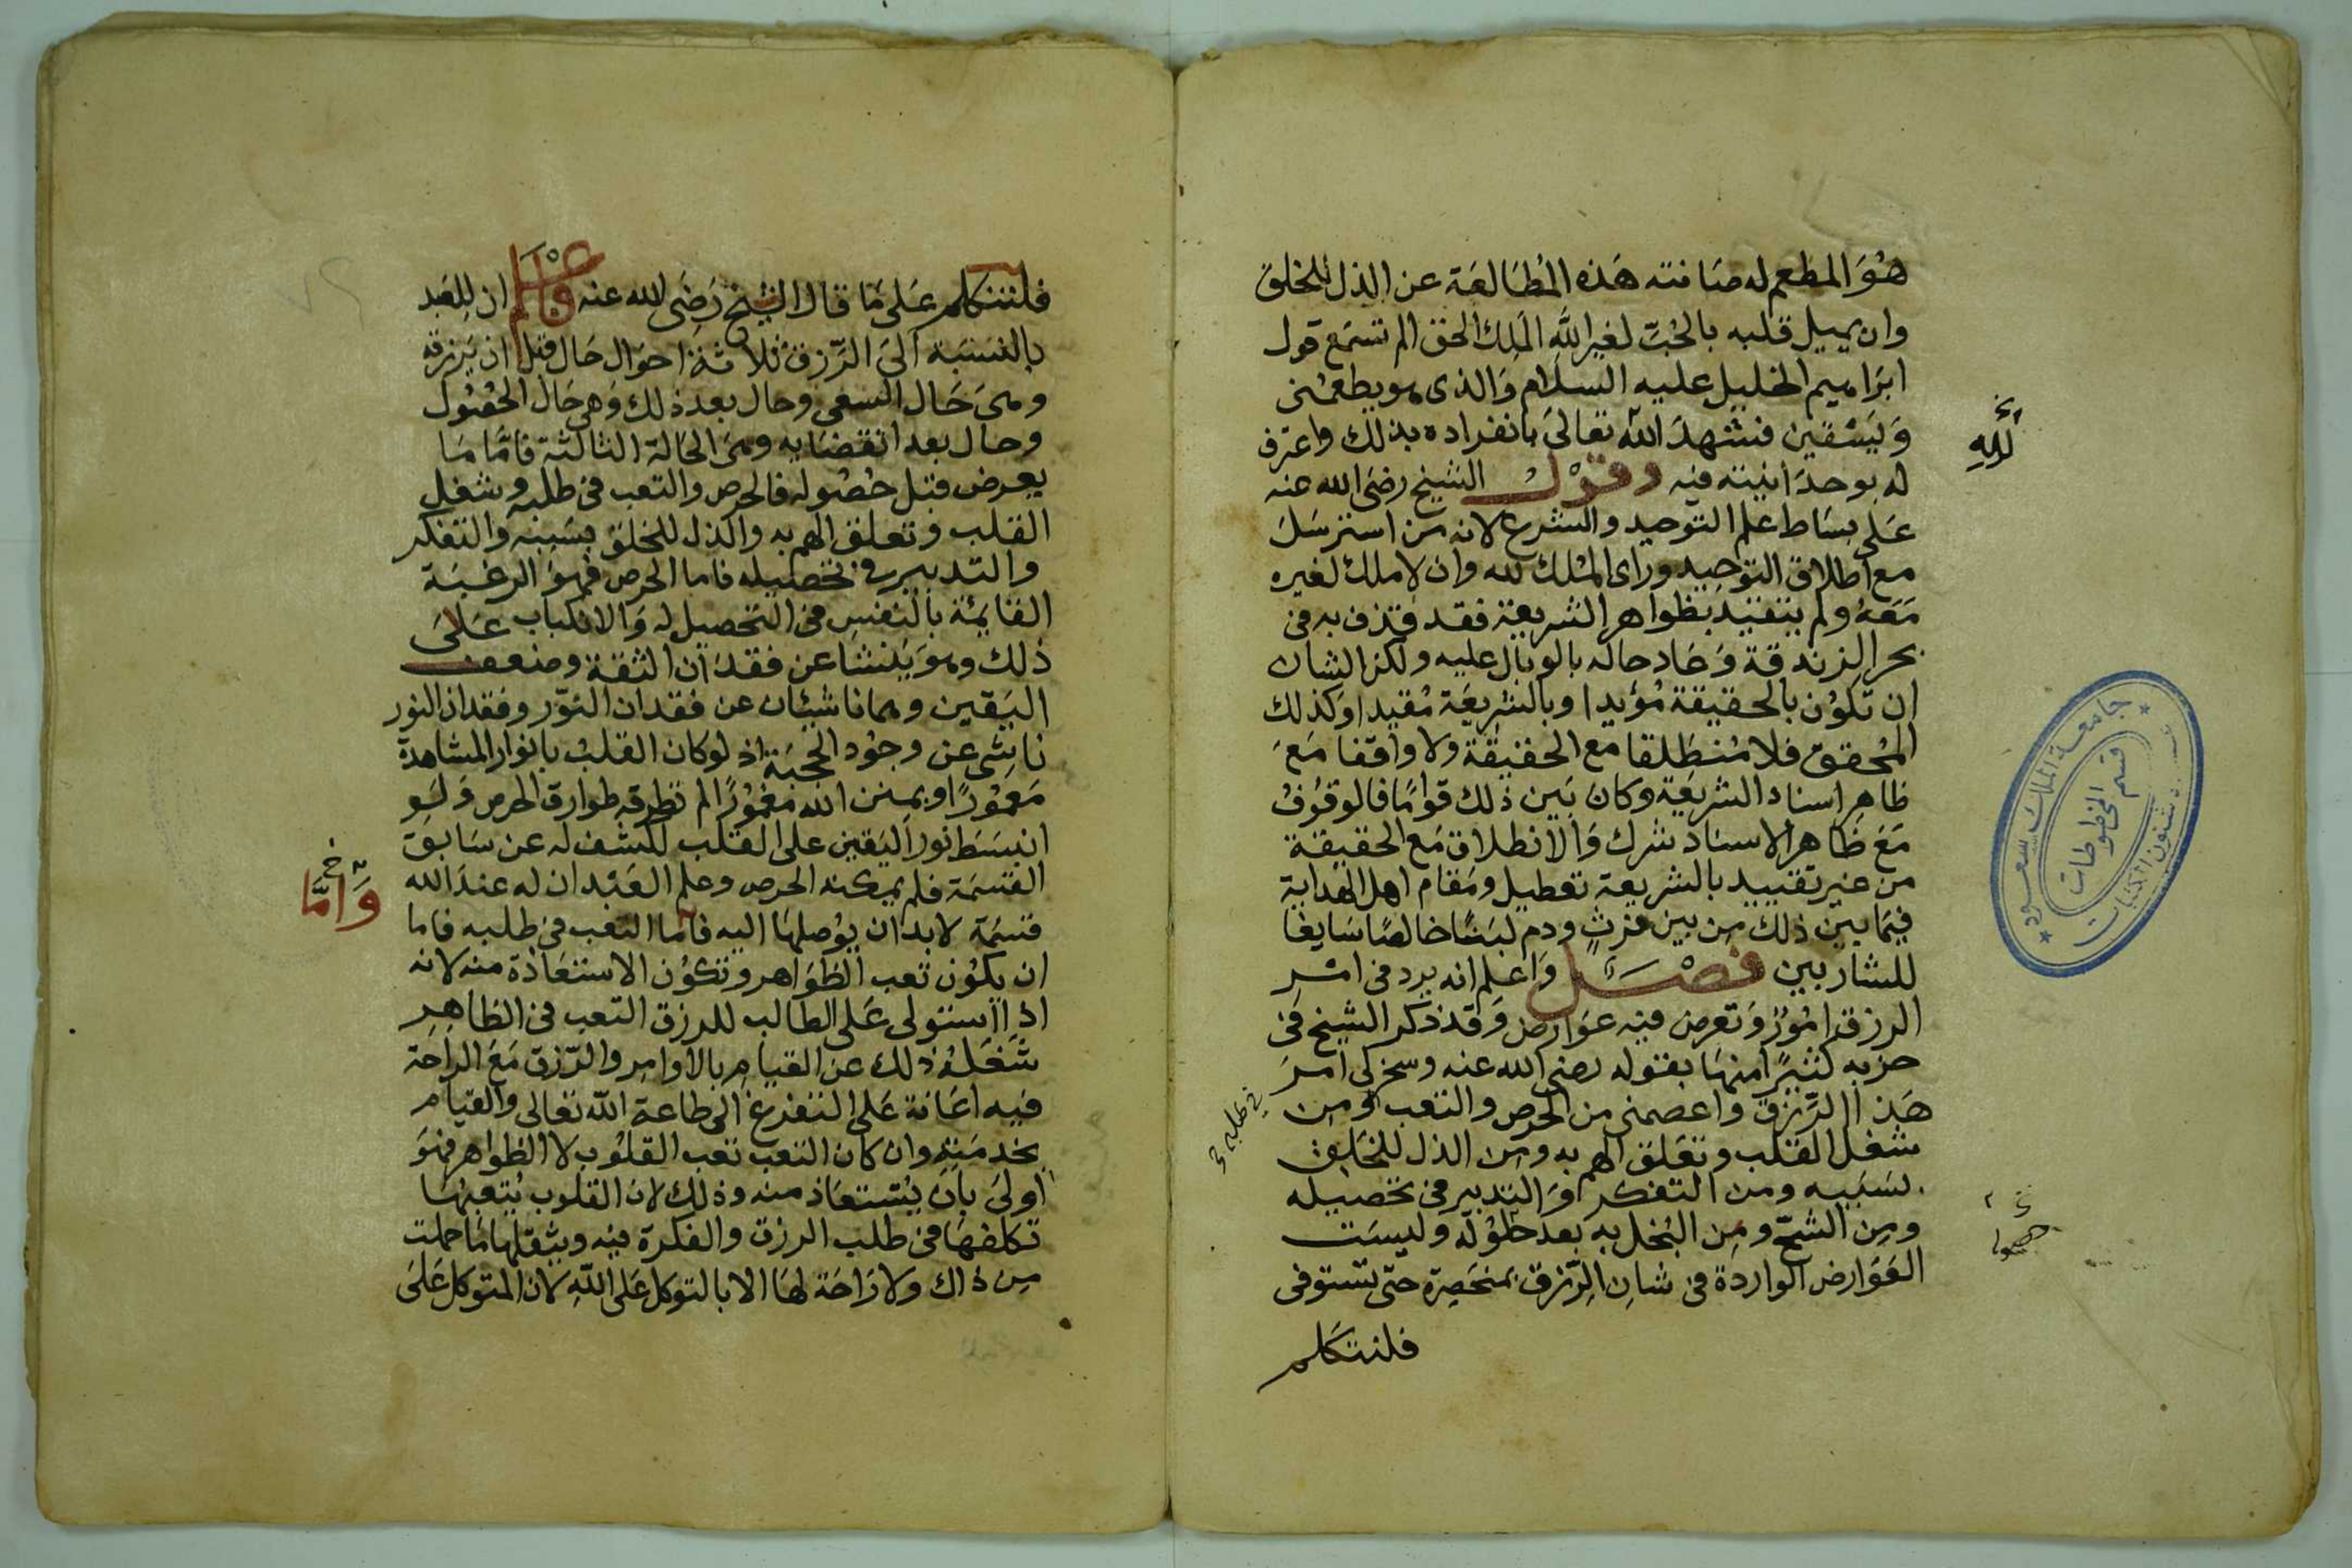 هُوَ المطعم له صانته هَذه المُطَالعَة عن الذل للخلق
وان يميل قلبه بالحُبّ لغير اللّه المَلِك الحق الم تسمَع قول
ابرَاهيم الخليل عليه السلَام وَالذى هو يطعمنى
وَيَسْقين فشهدَ اللّه تعالىَ بانفراده بذلك واعترف
لله
له بوحدَانيته فيه وقوْل الشيخ رضىَ الله عنه
عَلى بسَاط علم التوحيد والشرع لانه من استرسَلَ
مع اطلاق التوحيد وراى المُلك لله وان لا ملك لغيره
مَعَهُ ولم يتقيد بظواهر الشريعة فقد قذف به فى
بحر الزندقة وَعَاد حاله بالوبال عليه ولكن الشان
ان تكوُن بالحقيقة مُؤيدا وبالشريعَة مُقيدا وكذلك
المُحقق فلا مُنطَلقا مع الحقيقَة ولا واقفا مَعَ
ظاهِر اسناد الشريعَة وكان بَين ذلك قوامًا فالوقوُفُ
مَعَ ظَاهر الاسنَاد شرك وَالانطلاق مَع الحقيقة
من غير تقييد بالشريعة تعطيل ومَقام اهل الهداية
فيمَا بين ذلك مِن بين فرثٍ ودم لبَنًا خالصًا سَايغا
للشاربين فصْــل وَاعلم انه يرد فى امْر
الرزق امُوُرٌ وَتعرض فيه عوَارض وَقد ذكر الشيخ فىَ
حزبه كثيرًا منهَا بقوله رضى الله عنه وسخر لى امرَ
هَذا الرِّزق واعصمنى من الحرص والتعب ومِن
فى طلبه
شغل القلب وتعَلق الهم به ومِن الذل للخَلق
بسَببِه ومن التفكر وَالتدبير فى تحصيله
ومِن الشحّ ومِن البُخل به بعدَ حصُوله وليسَت
العَوَارض الواردة فى شان الرِّزق بمنحَصِرة حتى تستوفى
فلنتكلم
فلنتكلم عَلى مَا قال الشيخ رَضىَ الله عنه فاعْلم ان للعَبد
بالنسَبة الىَ الرِّزق ثلاثة احوَال حَال قبل ان يَرزقه
وهىَ حَال السعى وحال بعد ذلك وَهى حَال الحصُول
وحال بعد انقضَايه وهىَ الحَالة الثالثة فامَّا مَا
يعرض قبل حُصُوله فالحرص والتعب فى طلبه وشغل
القلب وتعلق الهم به والذل للخلق بسَببه والتفكر
والتدبير فى تحصيله فاما الحرص فهوَ الرغبَة
القايمَة بالنفسِ فى التحصيل له وَالانكباب عَلىَ
ذلك وهوَ ينشا عن فقدَان الثقة وضعف
اليَقين وهما ناشئان عن فقدان النوّر وفقدان النور
ناشى عن وجُود الحجبَة اذ لو كان القلبُ بانوار المشاهدة
مَعمُوُرًا وبمِنن الله مغمُوُرًا لم تطرقه طوارق الحرص وَلَو
انبسَطَ نور اليَقين على القلب لكشف له عن سَابق
القسَمَة فلم يمكنه الحرص وعلم العَبْد ان له عندَ الله
قسمَة لابد ان يوُصلهَا اليه فاما التعب فى طلبه فاما
وَامَّا
ان يكوُن تعب الظوَاهر وتكوُن الاستعَاذة منه لانه
اذا استولى عَلى الطالب للرزق التعب فى الظاهِر
شَغَلهُ ذلك عن القيامِ بالاوامِر والرّزق مَعَ الراحَة
فيه اعَانة عَلى التفرغ الى طاعة اللّه تعالى والقيام
بخدمَتِه وان كان التعب تعب القلوُب لا الظواهر فهوَ
اولىَ بان يُسْتعَاذ منه وذلك لان القلوب يُتعبهَا
تكلفهَا فى طلب الرزق والفكرة فيه ويثقلهَا مَا حملت
مِن ذاك ولا رَاحَة لهَا الا بالتوكل عَلى اللّهِ لان المتوكل عَلىَ
جامعة الملك سعود
قسم المخطوطات
شئون المكتبات